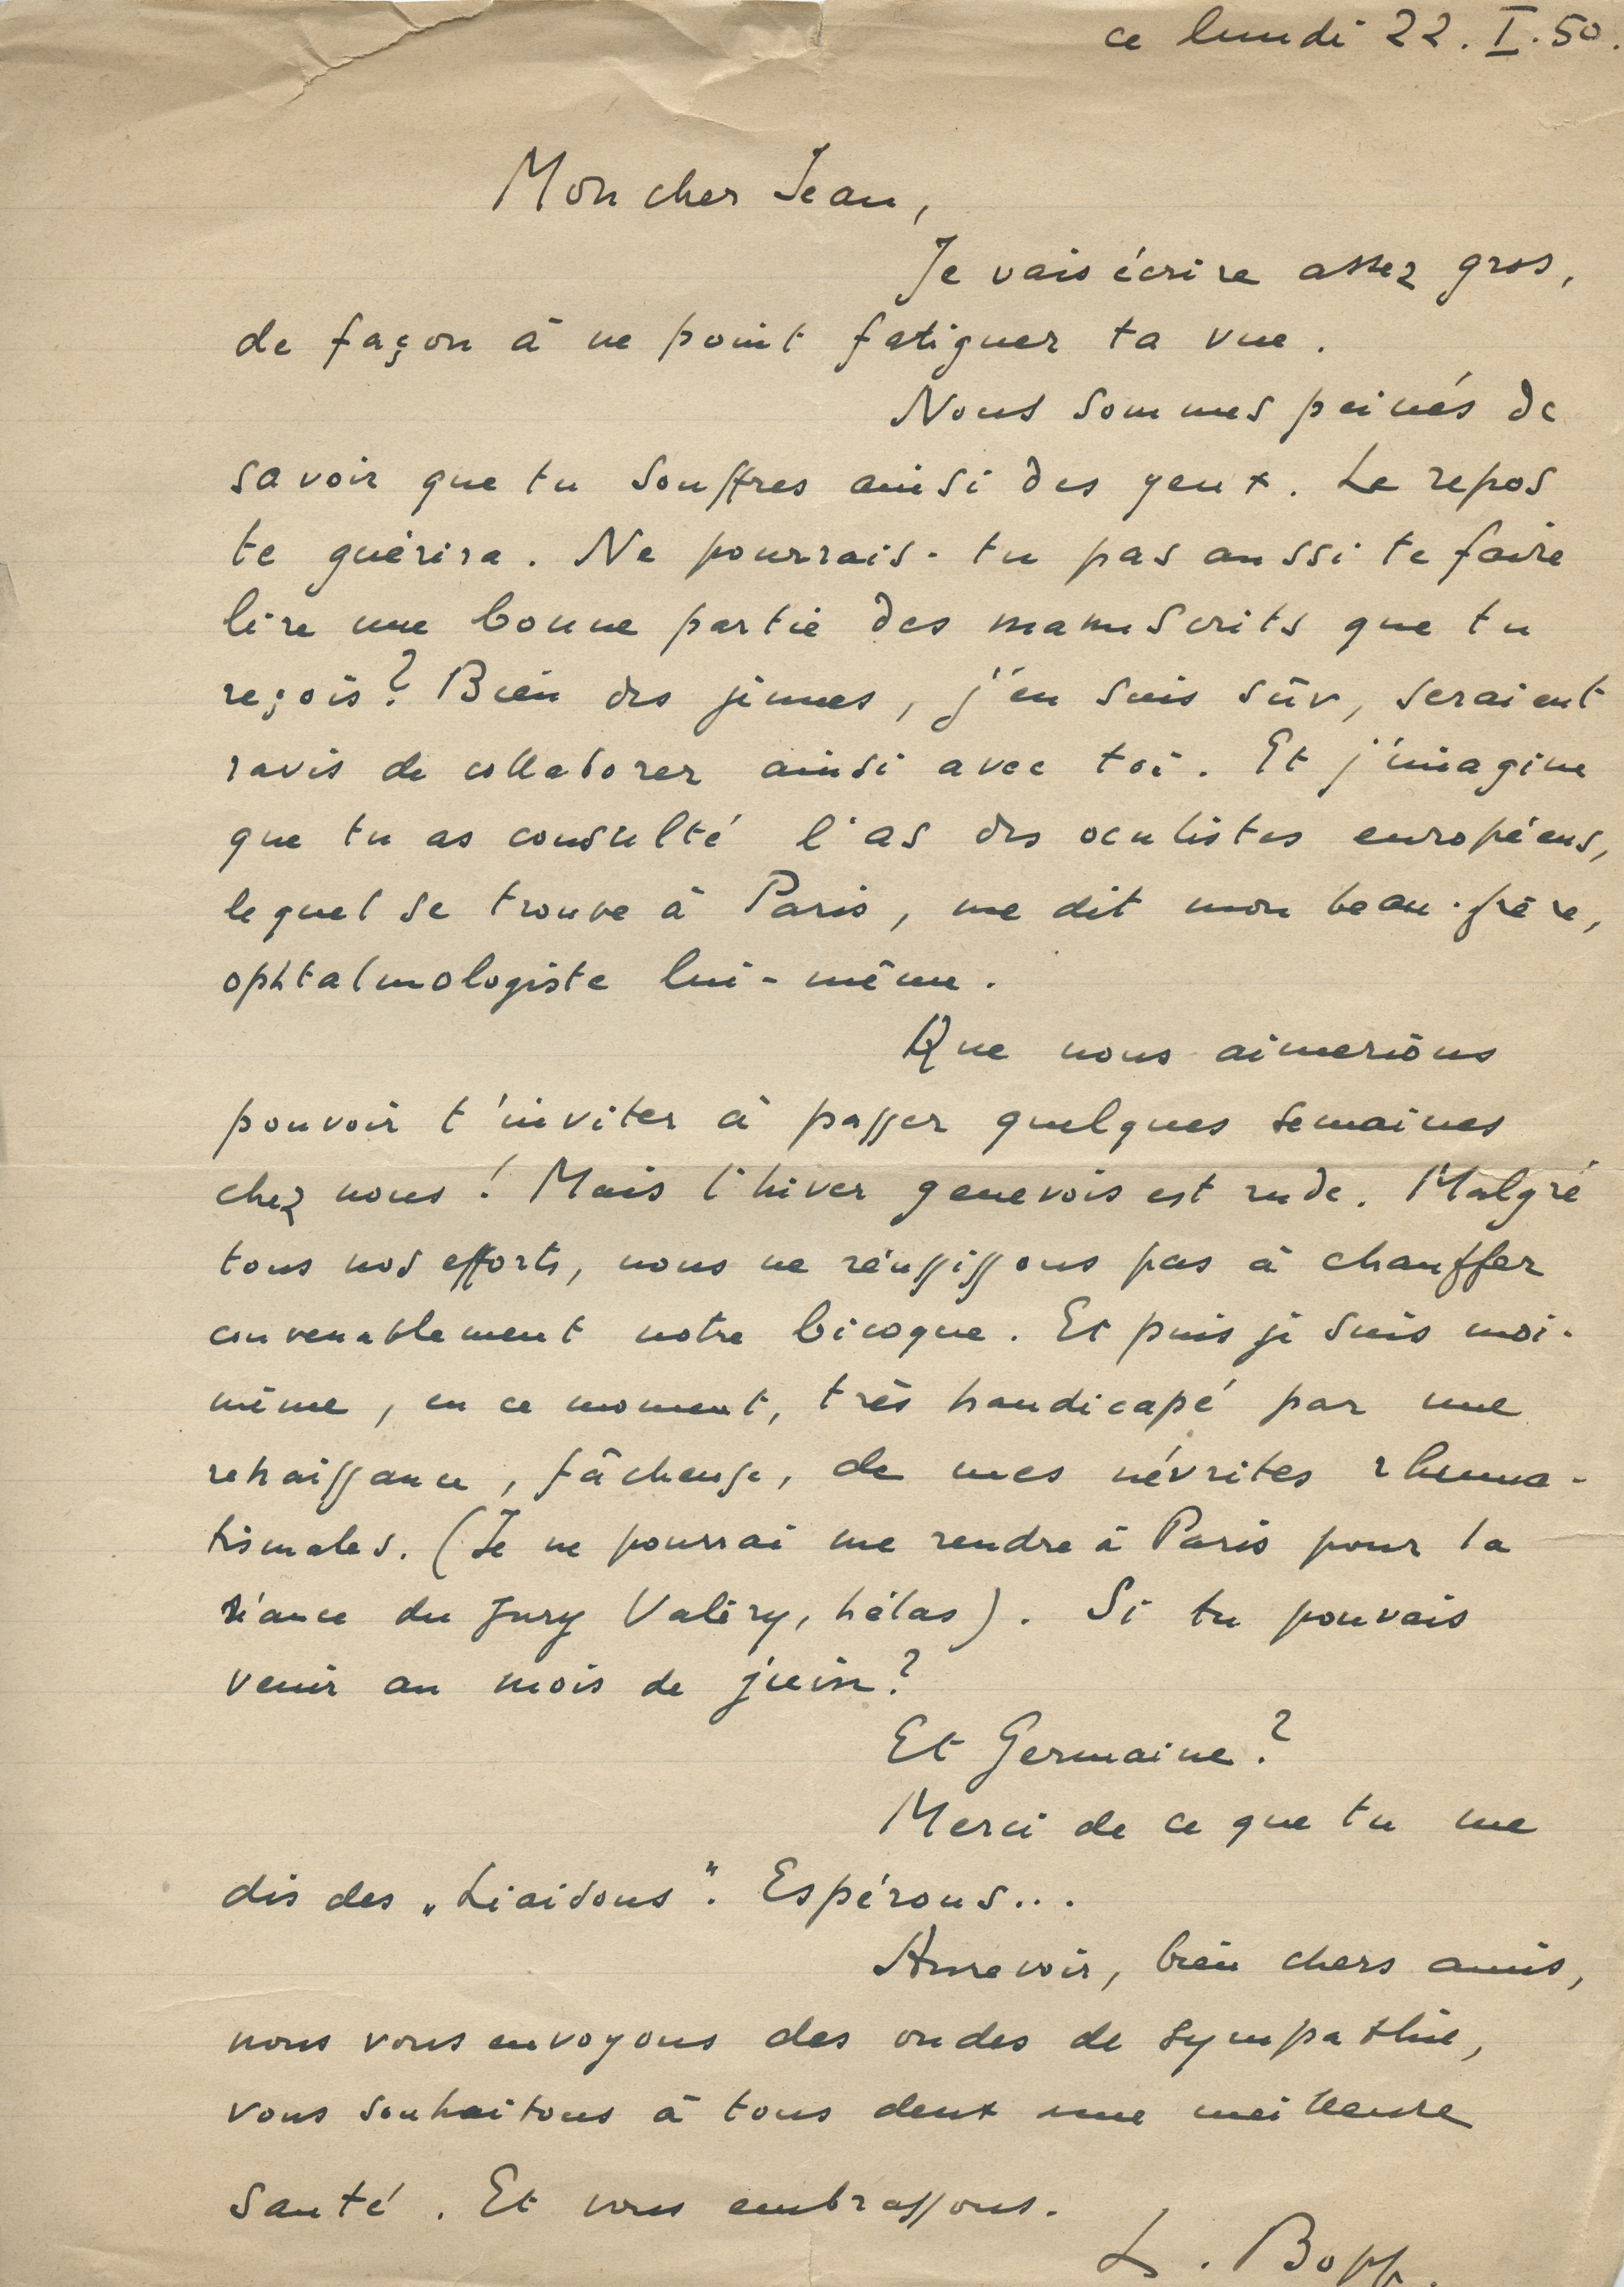 ce lundi 22. I. 50.
Mon cher Jean,
Je vais écrire assez gros,
de façon à ne point fatiguer ta vue.
Nous sommes peinés de
savoir que tu souffres ainsi des yeux. Le repos
te guérira. Ne pourrais-tu pas aussi te faire
lire une bonne partie des manuscrits que tu
reçois? Bien des jeunes, j'en suis sûr, seraient
ravis de collaborer ainsi avec toi. Et j'imagine
que tu as consulté l'as des oculistes européens,
lequel se trouve à Paris, me dit mon beau-frère,
ophtalmologiste lui-même.
Que nous aimerions
pouvoir t'inviter à passer quelques semaines
chez nous! Mais l'hiver genevois est rude. Malgré
tous nos efforts, nous ne réussissons pas à chauffer
convenablement notre bicoque. Et puis je suis moi-
même, en ce moment, très handicapé par une
renaissance, fâcheuse, de mes névrites rhuma-
tismales. (Je ne pourrai me rendre à Paris pour la
séance du Jury Valéry, hélas). Si tu pouvais
venir au mois de juin?
Et Germaine?
Merci de ce que tu me
dis des „Liaisons". Espérons...
Aurevoir, bien chers amis,
nous vous envoyons des ondes de sympathie,
vous souhaitons à tous deux une meilleure
santé. Et vous embrassons.
L. Bopp.